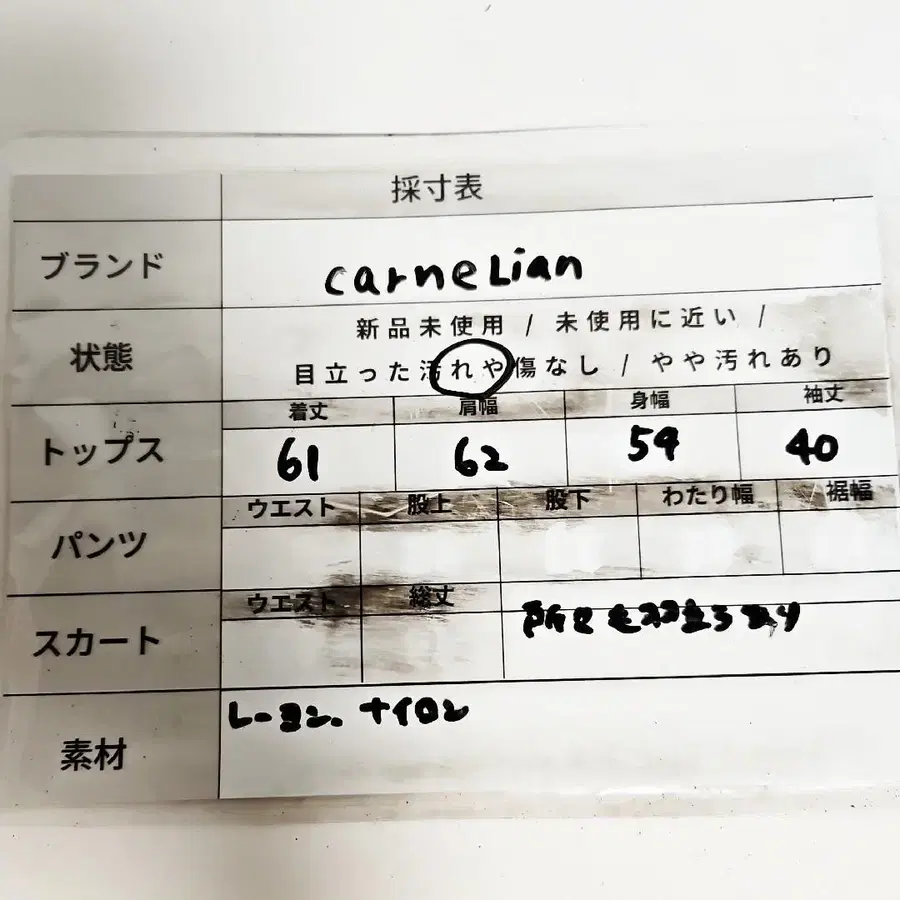 採寸表
ブランド carneLian
状態 新品未使用 / 未使用に近い /
目立った汚れや傷なし / やや汚れあり
着丈 肩幅 身幅 袖丈
トップス 61 62 54 40
ウエスト 股上 股下 わたり幅 裾幅
パンツ
ウエスト 総丈
スカート あり
素材 レーヨン、ナイロン